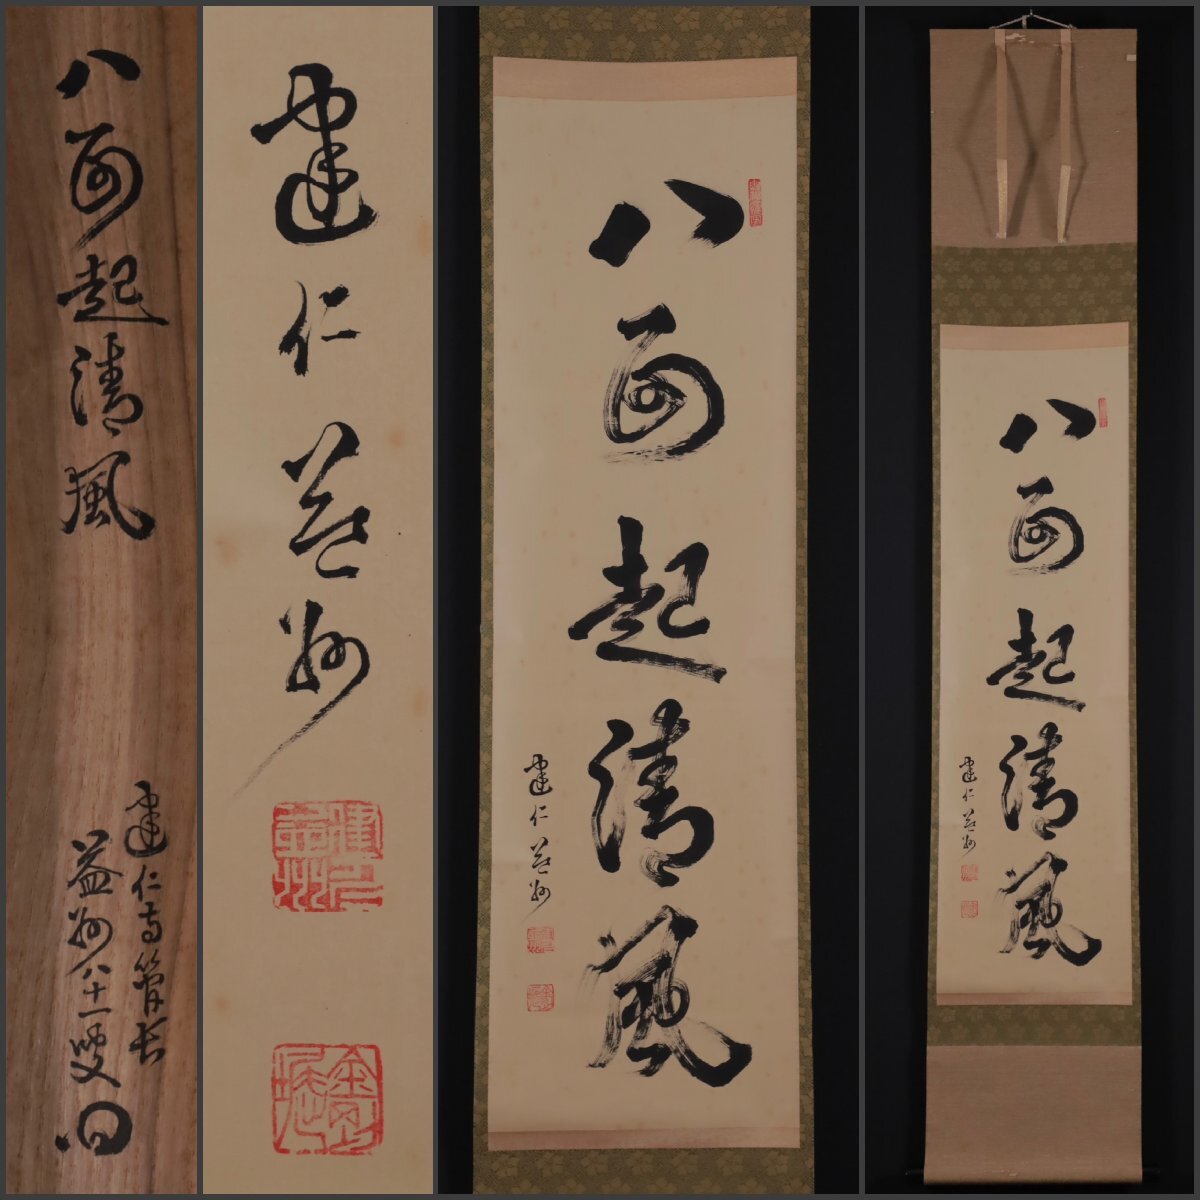 八面起清風
建仁寺管長
益州八十一叟
建仁益州
建仁
益州
八面起清風
建仁益州
八面起清風
建仁益州